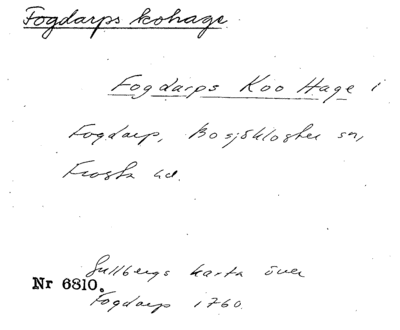 Fogdarps kohage.
Fogdarps Koo Hage i
Fogdarp, Bosjökloster sn,
Frosta hd.
Gullbergs karta över
Nr 6810.
Fogdarp 1760.